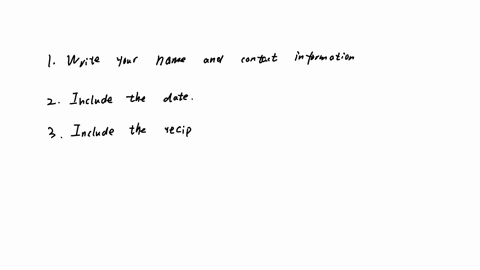 1. Write your name and contact information
2. Include the date.
3. Include the recip